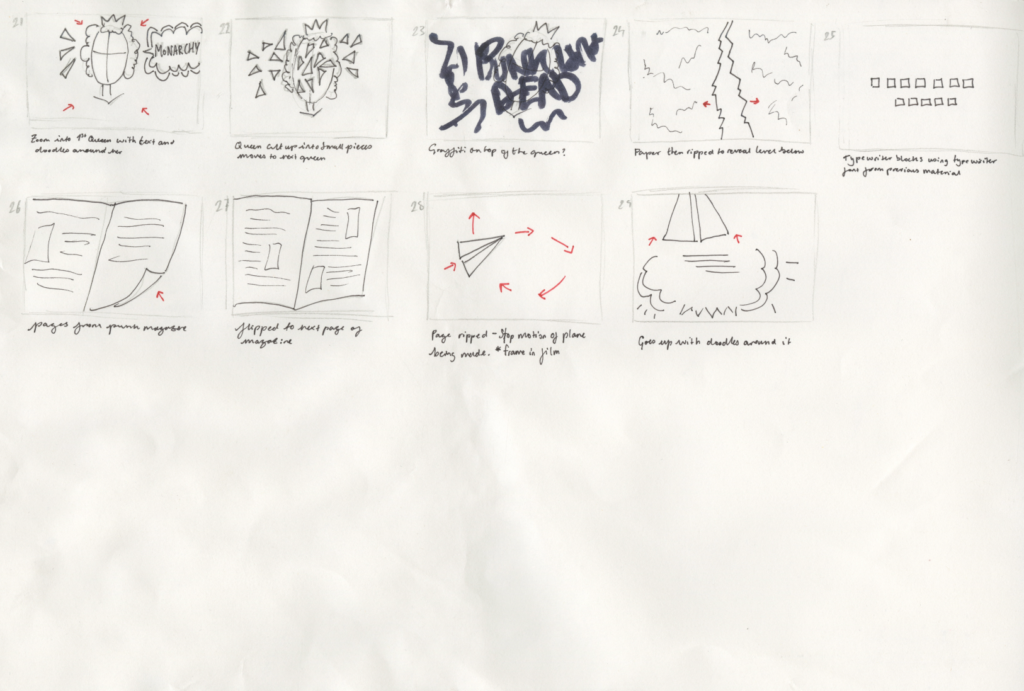 21
MONARCHY
Zoom into 1st Queen with text and
doodles around her
22
Queen cut up into small pieces
moves to next queen
23
PUNK
DEAD
Graffiti on top of the queen?
24
Paper then ripped to reveal level below
25
Typewriter blocks using typewriter
from previous material
26
pages from punk magazine
27
flipped to next page of
magazine
28
Page ripped - Stop motion of plane
being made. * frame in film
29
Goes up with doodles around it